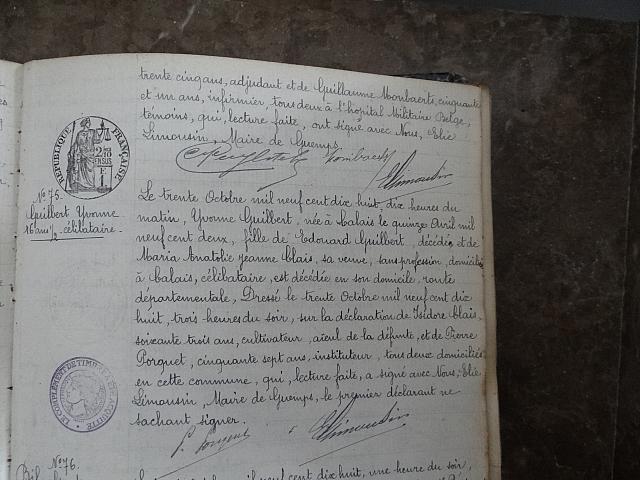 trente cinq ans, adjudant et de Guillaume Monbaerts, cinquante
et un ans, infirmier, tous deux à l'hôpital Militaire Belge,
témoins, qui, lecture faite, ont signé avec Nous, Elie
Limousin, Maire de Guemps.
ELimousin
RÉPUBLIQUE FRANÇAISE
No 75.
Guilbert Yvonne
16 ans 1/2 célibataire.
Le trente Octobre mil neuf cent dix huit, dix heures du
matin, Yvonne Guilbert, née à Calais le quinze Avril mil
neuf cent deux, fille de Edouard Guilbert, décédé, et de
Maria Anatolie Jeanne Clais, sa veuve, sans profession, domiciliée
à Calais, célibataire, est décédée en son domicile, route
départementale, Dressé le trente Octobre mil neuf cent dix
huit, trois heures du soir, sur la déclaration de Isidore Clais,
soixante trois ans, cultivateur, aïeul de la défunte, et de Pierre
Porquet, cinquante sept ans, instituteur, tous deux domiciliés
en cette commune, qui, lecture faite, a signé avec Nous, Elie
Limousin, Maire de Guemps, le premier déclarant ne
sachant signer.
P. Porquet ELimousin
No 76.
mil neuf cent dix huit, une heure du soir,